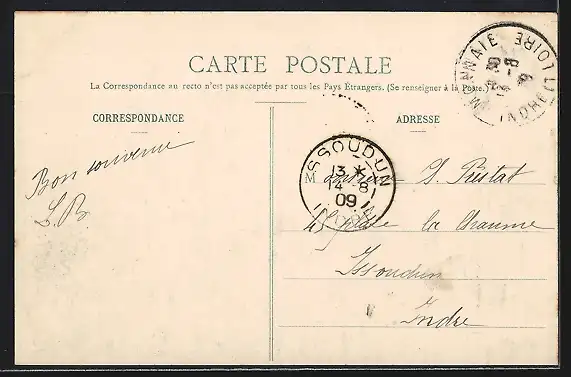 CARTE POSTALE
La Correspondance au recto n'est pas acceptée par tous les Pays Étrangers. (Se renseigner à la Poste.)
CORRESPONDANCE
ADRESSE
Bon souvenir
L. B.
M
S. Préstat
place la Chaume
Issoudun
Indre
ISSOUDUN
13 *
14 - 8
09
INDRE
MONNAIE
INDRE-ET-LOIRE